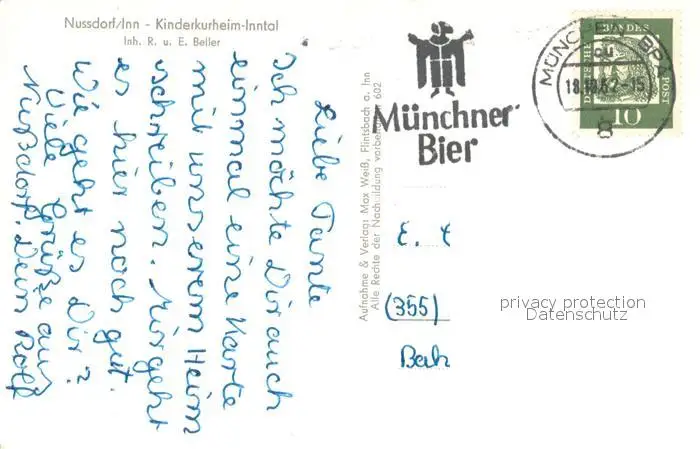 Nussdorf/Inn - Kinderkurheim-Inntal
Inh. R. u. E. Beller
Liebe Tante
Ich möchte Dir auch
einmal eine Karte
mit unserem Heim
schreiben. Mir geht
es hier noch gut.
Wie geht es Dir?
Viele Grüße aus
Nußdorf. Dein Rolf
Aufnahme & Verlag: Max Weiß, Flintsbach a. Inn
Alle Rechte der Nachbildung vorbehalten 602
Münchner
Bier
MÜNCHEN BPA
18.10.62-15
8
DEUTSCHE BUNDESPOST
10
E. E
(355)
Bah
privacy protection
Datenschutz